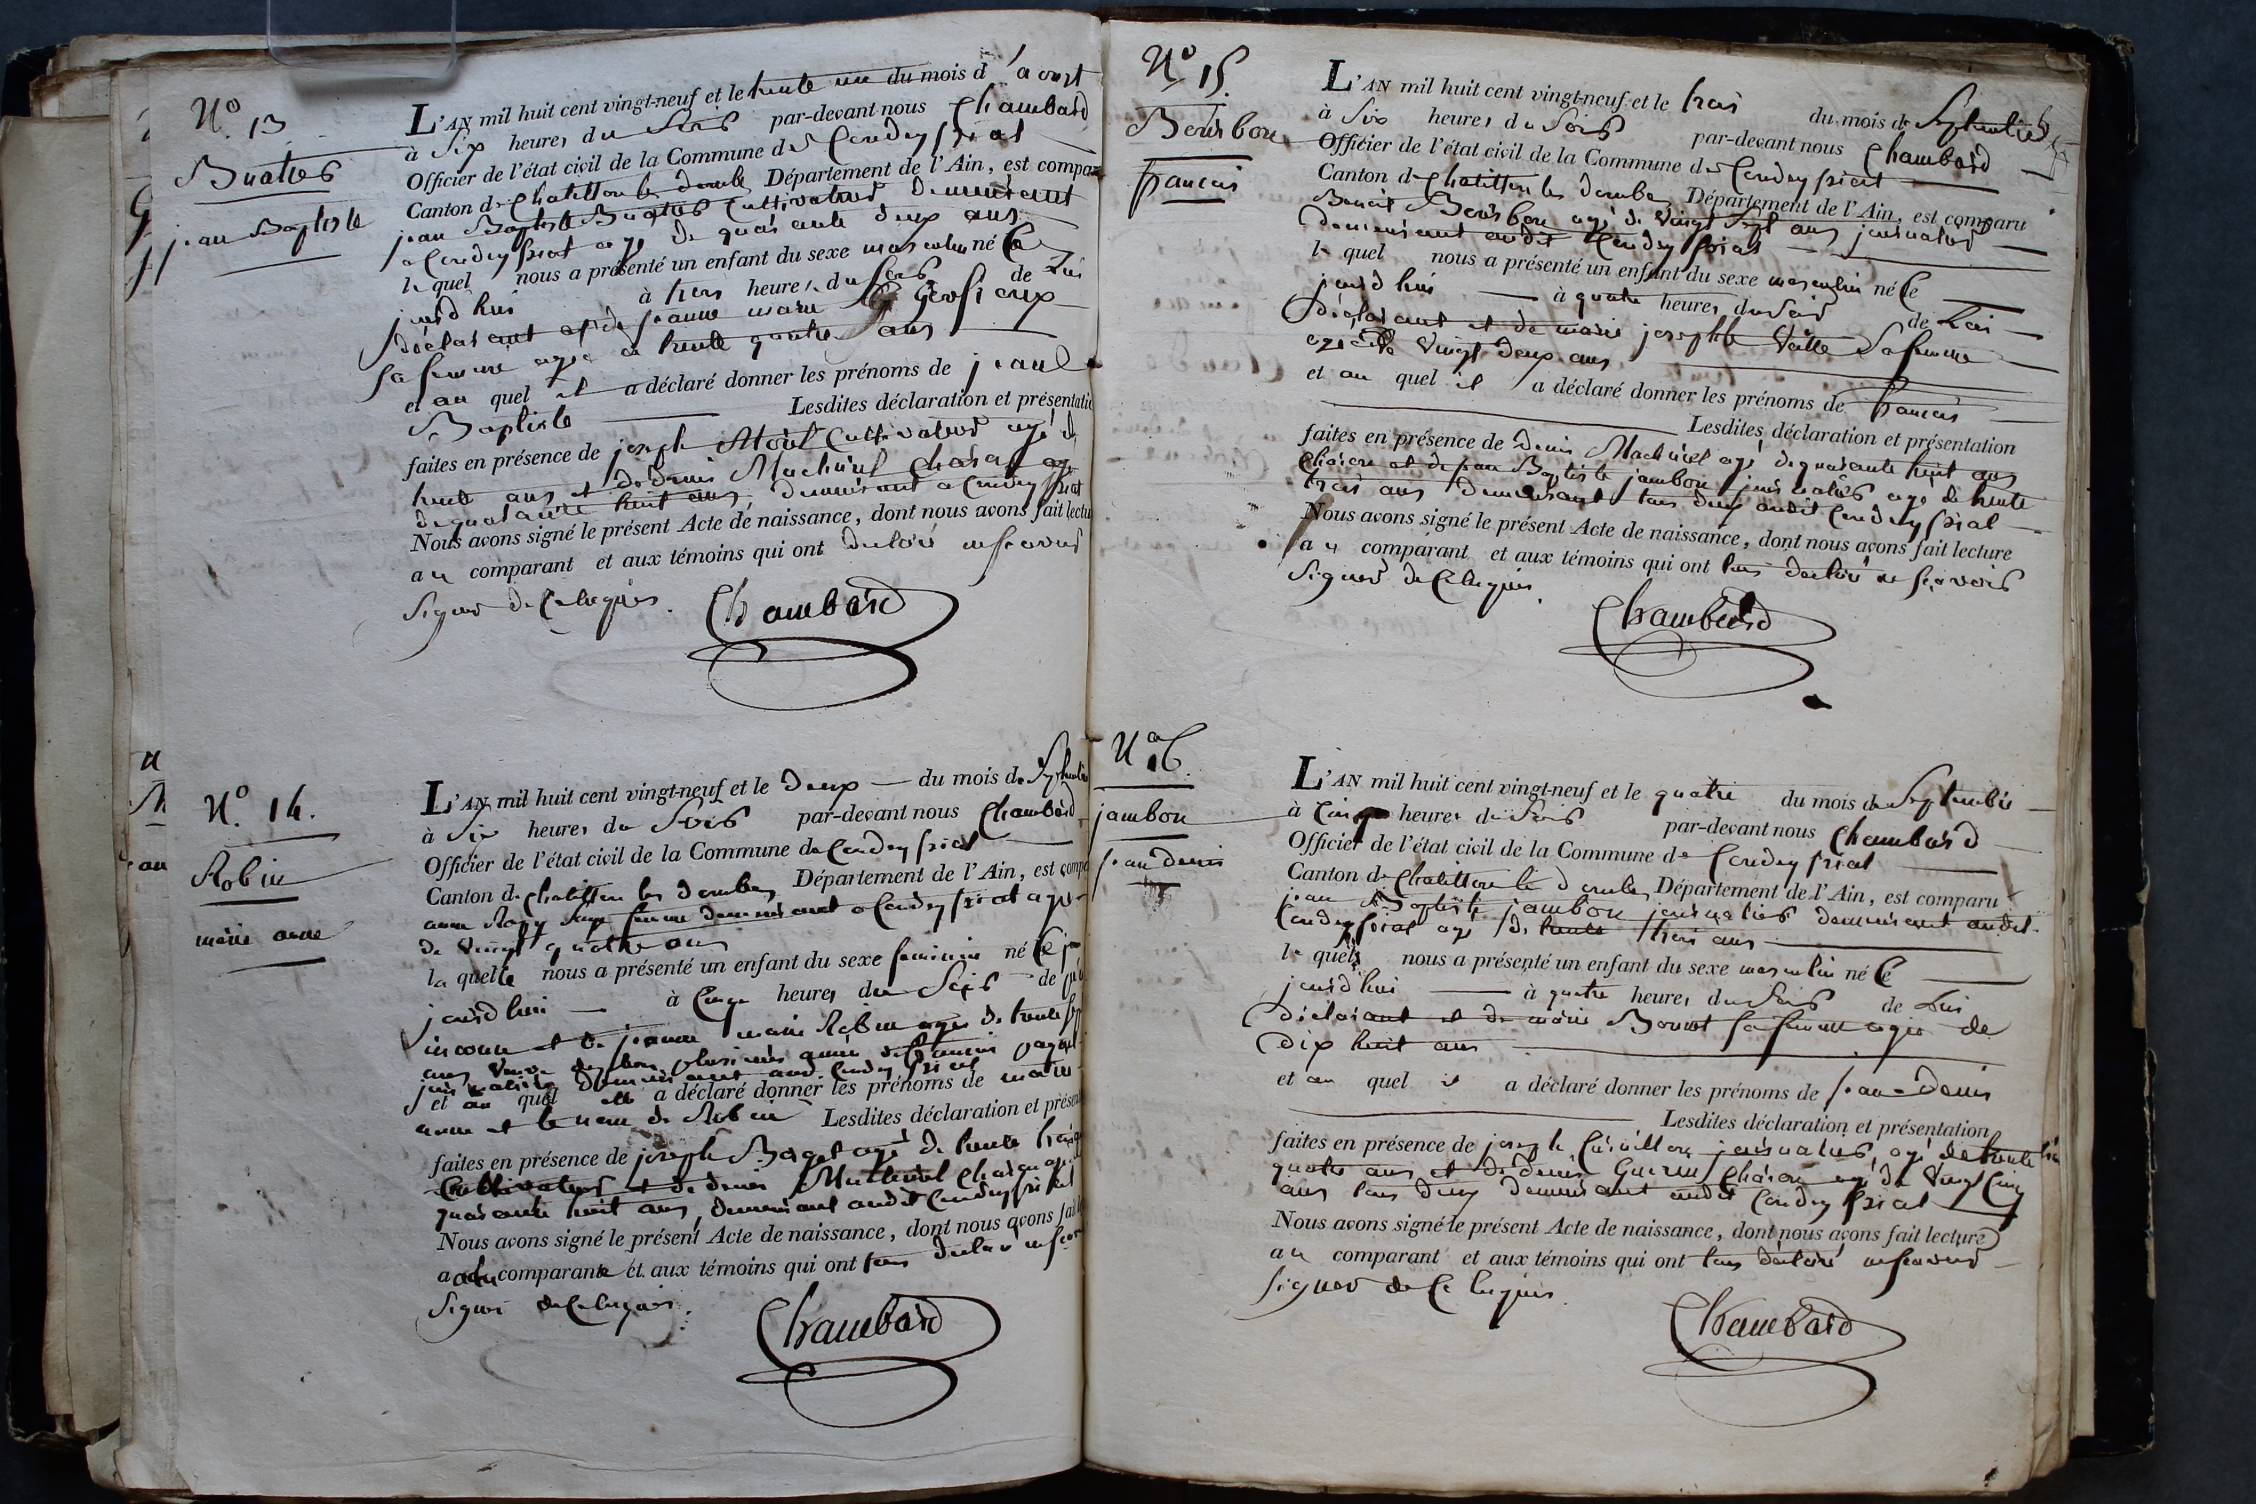 N.o 13
Buatier
jean Baptiste
L'AN mil huit cent vingt-neuf et le trente un du mois d'aoust
à Six heures du Soir par-devant nous Chambard
Officier de l'état civil de la Commune de Condeyssiat
Canton de Chatillon les dombes Département de l'Ain, est compar
jean Baptiste Buatier Cultivateur demeurant
a Condeyssiat agé de quarante deux ans
le quel nous a présenté un enfant du sexe masculin né Ce
jourd'hui à trois heures du Soir de Lui
Déclarant et de jeanne marie
Sa femme agée de trente quatre ans
et au quel il a déclaré donner les prénoms de jean
Baptiste Lesdites déclaration et présentatio
faites en présence de joseph Cultivateur agé de
trente ans et de denis Charon agé
de quarante huit ans, demeurant a Condeyssiat
Nous avons signé le présent Acte de naissance, dont nous avons fait lectu
au comparant et aux témoins qui ont declaré ne Savoir
Signer de Ce Requis. Chambard
N.o 14.
Robin
marie anne
L'AN mil huit cent vingt-neuf et le deux du mois de Septembre
à Six heures du Soir par-devant nous Chambard
Officier de l'état civil de la Commune de Condeyssiat
Canton de Chatillon les dombes Département de l'Ain, est compa
anne Sage femme demeurant a Condeyssiat agée
de vingt quatre ans
la quelle nous a présenté un enfant du sexe feminin né Ce
jourd'hui à Cinq heures du Soir de
inconnu et de jeanne marie Robin agée de trente
ans veuve plusieurs année
journalier demeurant aud. Condeyssiat
et au quel elle a déclaré donner les prénoms de marie
anne et le nom de Robin Lesdites déclaration et présen
faites en présence de joseph agé de trente trois
Cultivateur et de denis Charon agé de
quarante huit ans, demeurant audit Condeyssiat
Nous avons signé le présent Acte de naissance, dont nous avons fai
a comparante et aux témoins qui ont tous declaré ne Scavoir
Signer de Ce Requis. Chambard
N.o 15.
Bourbon
francois
L'AN mil huit cent vingt-neuf et le trois du mois de Septembre
à Six heures du Soir par-devant nous Chambard
Officier de l'état civil de la Commune de Condeyssiat
Canton de Chatillon les dombes Département de l'Ain, est comparu
Benoit Bourbon agé de vingt Sept ans journalier
demeurant audit Condeyssiat
le quel nous a présenté un enfant du sexe masculin né Ce
jourd'hui à quatre heures du Soir de Lui
Déclarant et de marie josephte Sa femme
agée de vingt deux ans
et au quel il a déclaré donner les prénoms de francois
Lesdites déclaration et présentation
faites en présence de denis agé de quarante huit ans
Charon et de jean Baptiste jambon journalier agé de trente
trois ans demeurant tous deux audit Condeyssiat
Nous avons signé le présent Acte de naissance, dont nous avons fait lecture
au comparant et aux témoins qui ont tous declaré ne Scavoir
Signer de Ce Requis. Chambard
N.o 16.
jambon
jean denis
L'AN mil huit cent vingt-neuf et le quatre du mois de Septembre
à Cinq heures du Soir par-devant nous Chambard
Officier de l'état civil de la Commune de Condeyssiat
Canton de Chatillon les dombes Département de l'Ain, est comparu
jean Baptiste jambon journalier demeurant audit
Condeyssiat agé de trente trois ans
le quel nous a présenté un enfant du sexe masculin né Ce
jourd'hui à quatre heures du Soir de Lui
Déclarant et de marie Sa femme agée de
dix huit ans
et au quel il a déclaré donner les prénoms de jean denis
Lesdites déclaration et présentation
faites en présence de joseph journalier, agé de trente
quatre ans et de denis Guerin Charon agé de vingt Cinq
ans tous deux demeurant audit Condeyssiat
Nous avons signé le présent Acte de naissance, dont nous avons fait lecture
au comparant et aux témoins qui ont tous déclaré ne Scavoir
Signer de Ce Requis. Chambard